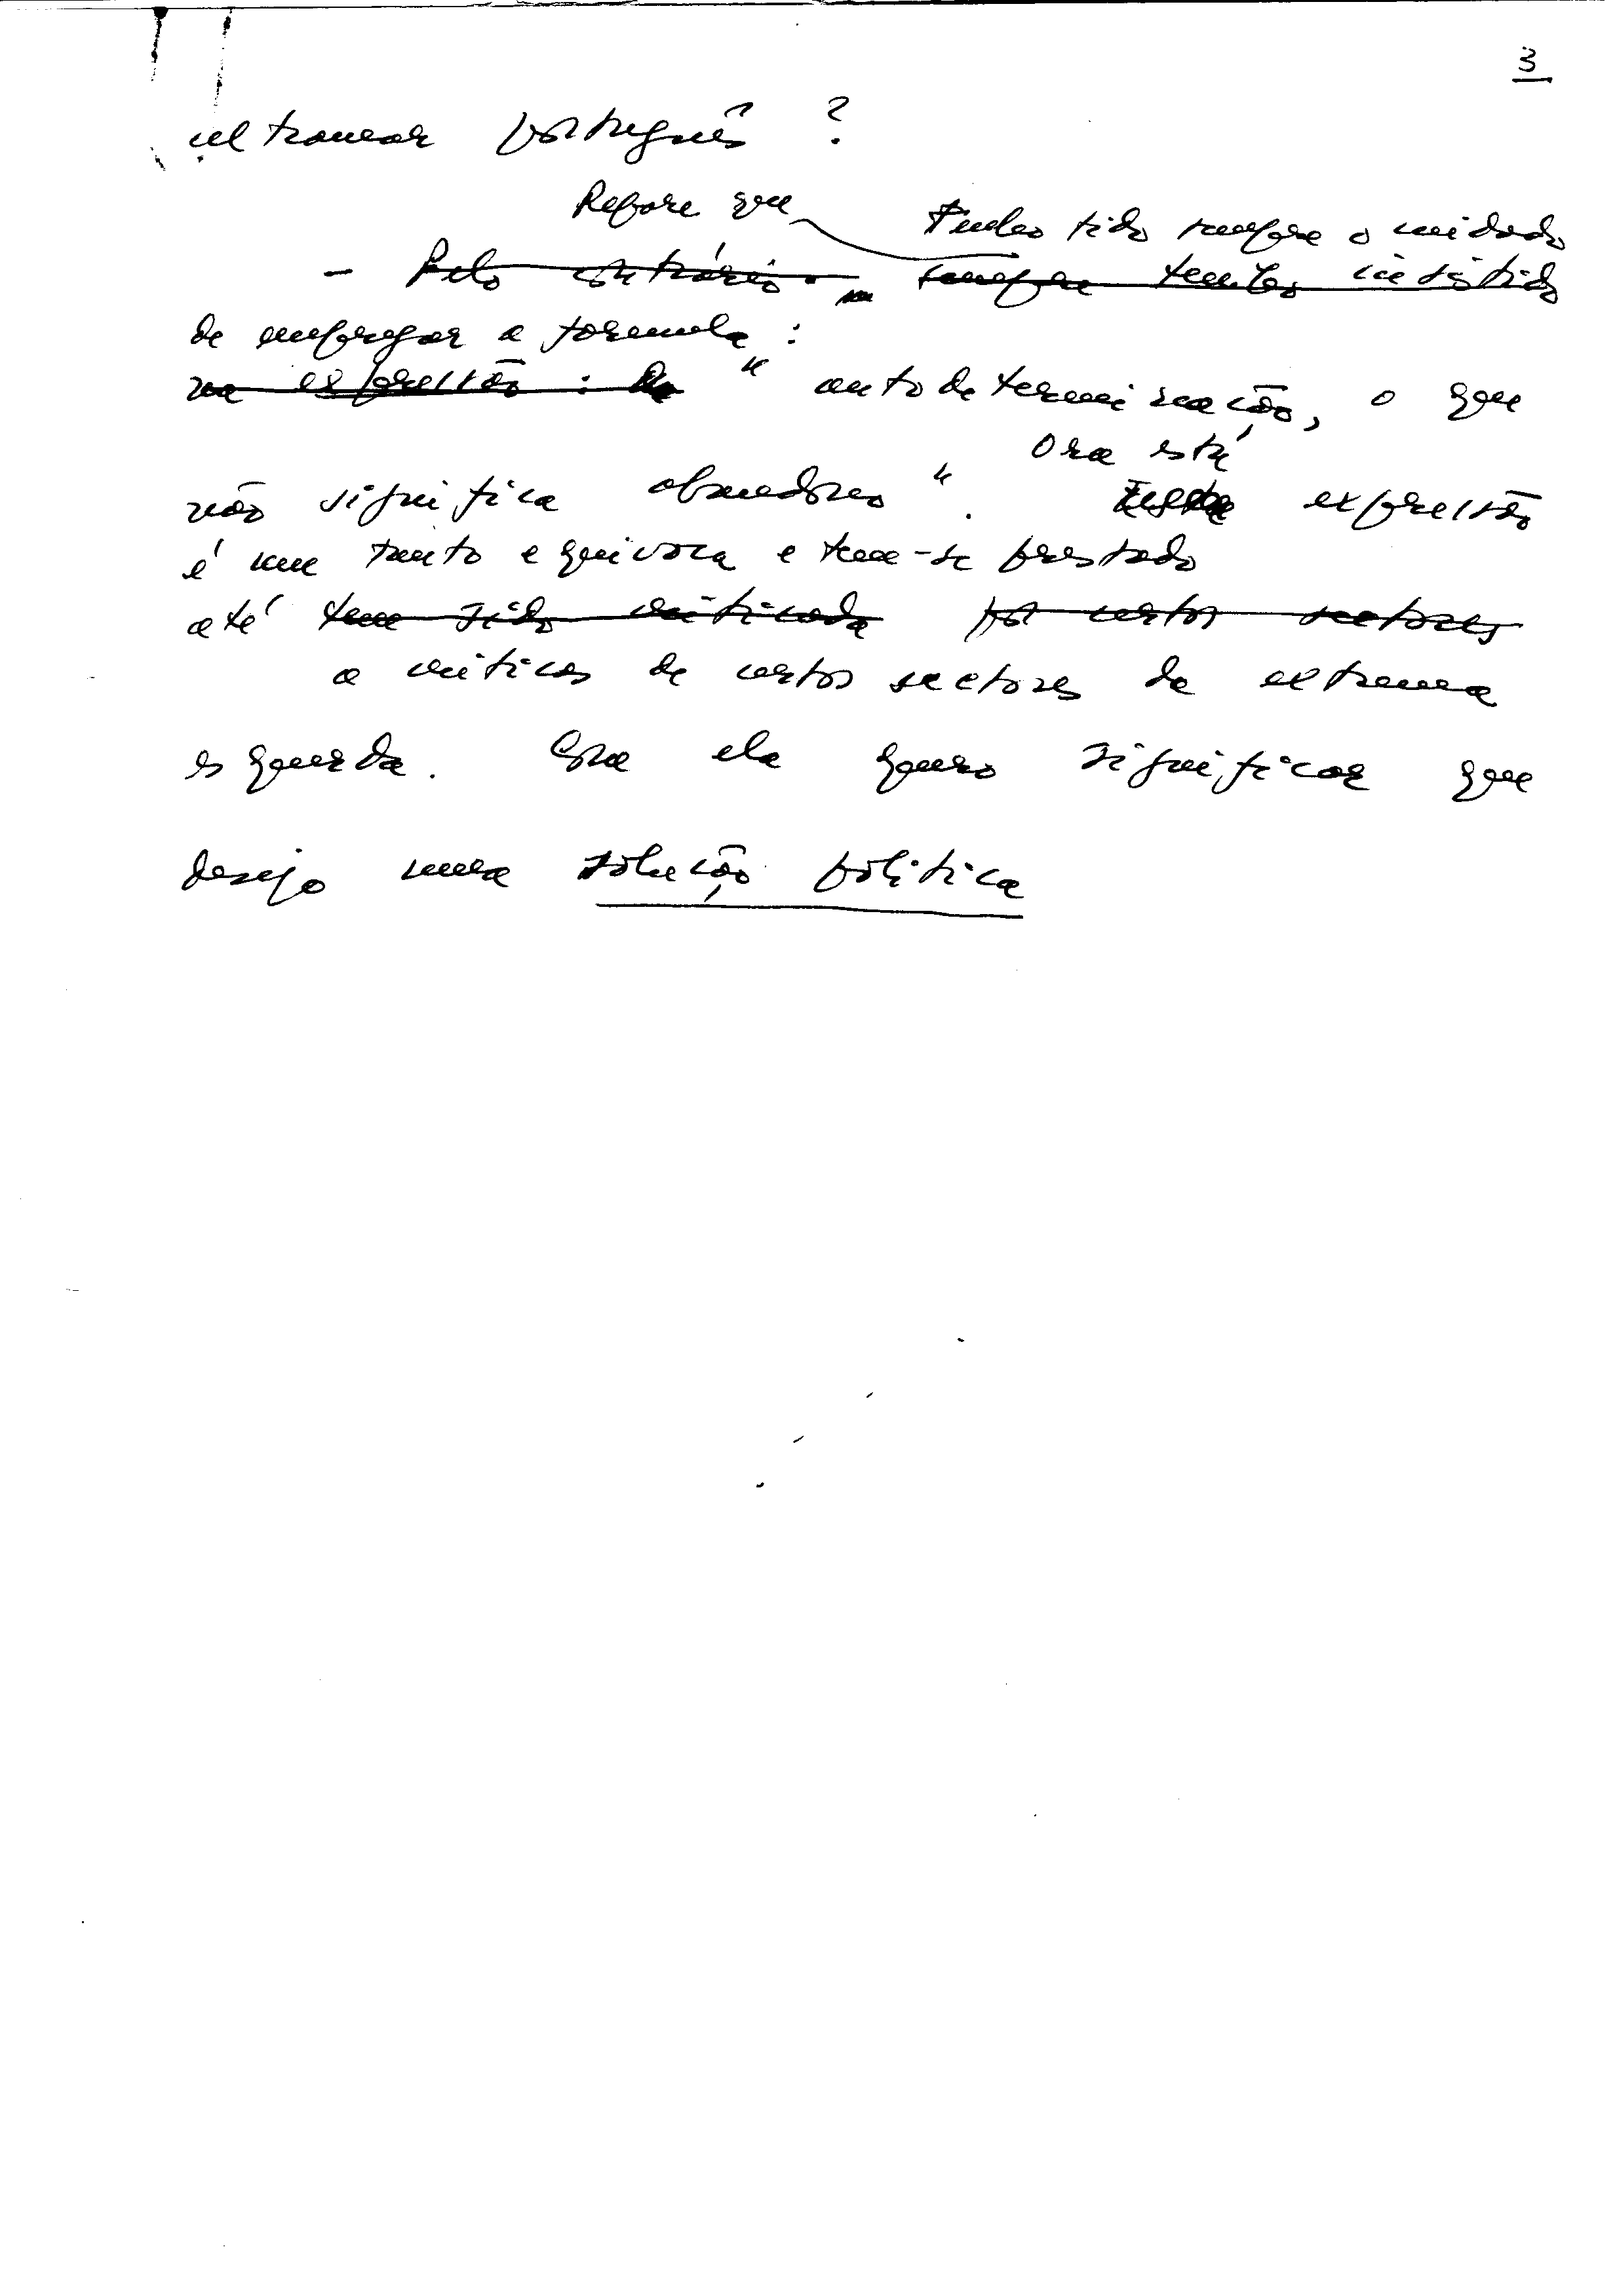 3
ultramar português ?
Repare que Tenho tido sempre o cuidado
- Pelo contrário. sempre tenho insistido
de empregar a formula :
na expressão : "autodeterminação, o que
não significa abandono". Ora esta
expressão
é um tanto equivoca e tem-se prestado
até tem sido criticada por certos sectores
a criticas de certos sectores da extrema
esquerda. Com ela quero significar que
desejo uma solução politica